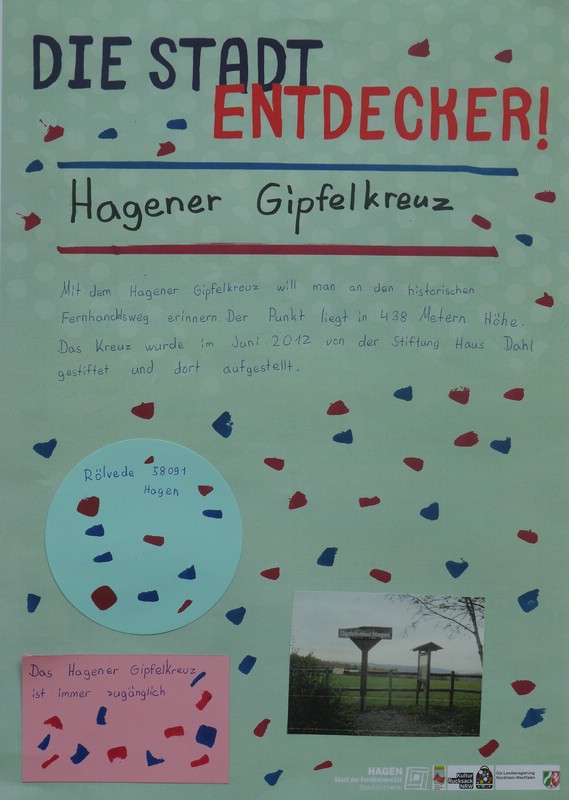 DIE STADT
ENTDECKER!
Hagener Gipfelkreuz
Mit dem Hagener Gipfelkreuz will man an den historischen
Fernhandelsweg erinnern. Der Punkt liegt in 438 Metern Höhe.
Das Kreuz wurde im Juni 2012 von der Stiftung Haus Dahl
gestiftet und dort aufgestellt.
Rölvede 58091
Hagen
Das Hagener Gipfelkreuz
ist immer zugänglich
HAGEN
Stadt der FernUniversität
Stadtbücherei
Kultur
Rucksack
NRW
Die Landesregierung
Nordrhein-Westfalen